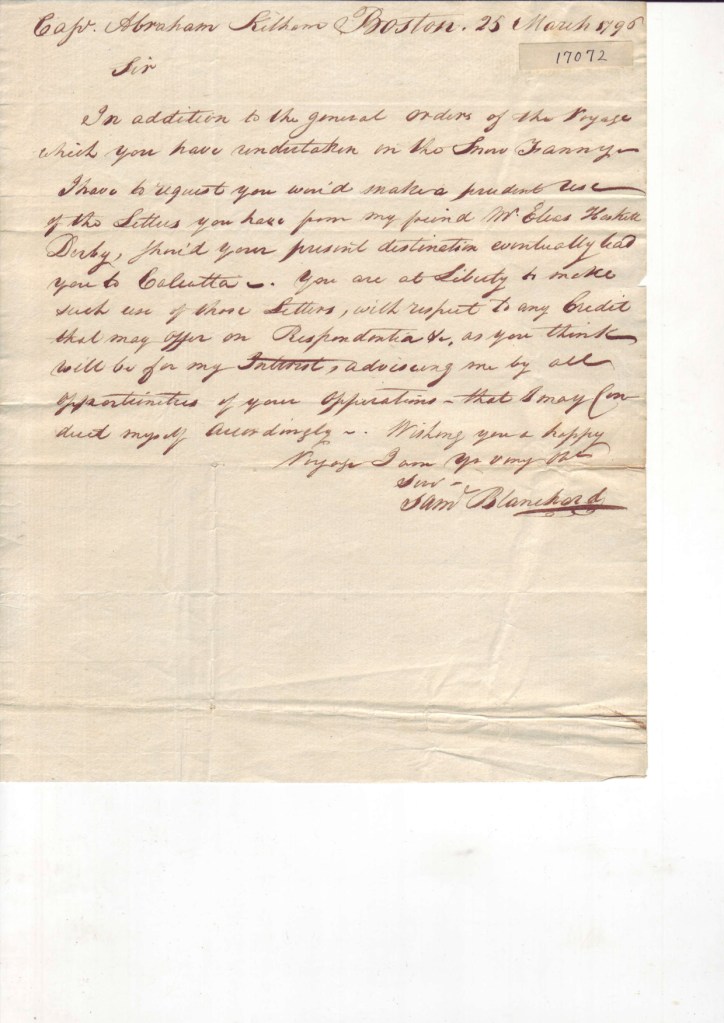 Capt. Abraham Kilham Boston. 25 March 1796
17072
Sir
In addition to the general orders of the Voyage
which you have undertaken in the Snow Fanny
I have to request you wou'd make a prudent Use
of the Letters you have from my freind Mr Elias Haskett
Derby, shou'd your present destination eventually lead
you to Calcutta. You are at Liberty to make
such use of those Letters, with respect to any Credit
that may offer on Respondentia &c, as you think
will be for my Interest, adviseing me by all
Opportunities of your Opperations - that I may Con
duct myself Accordingly -. Wishing you a happy
Voyage I am Yr very
Serv
Saml Blanchard